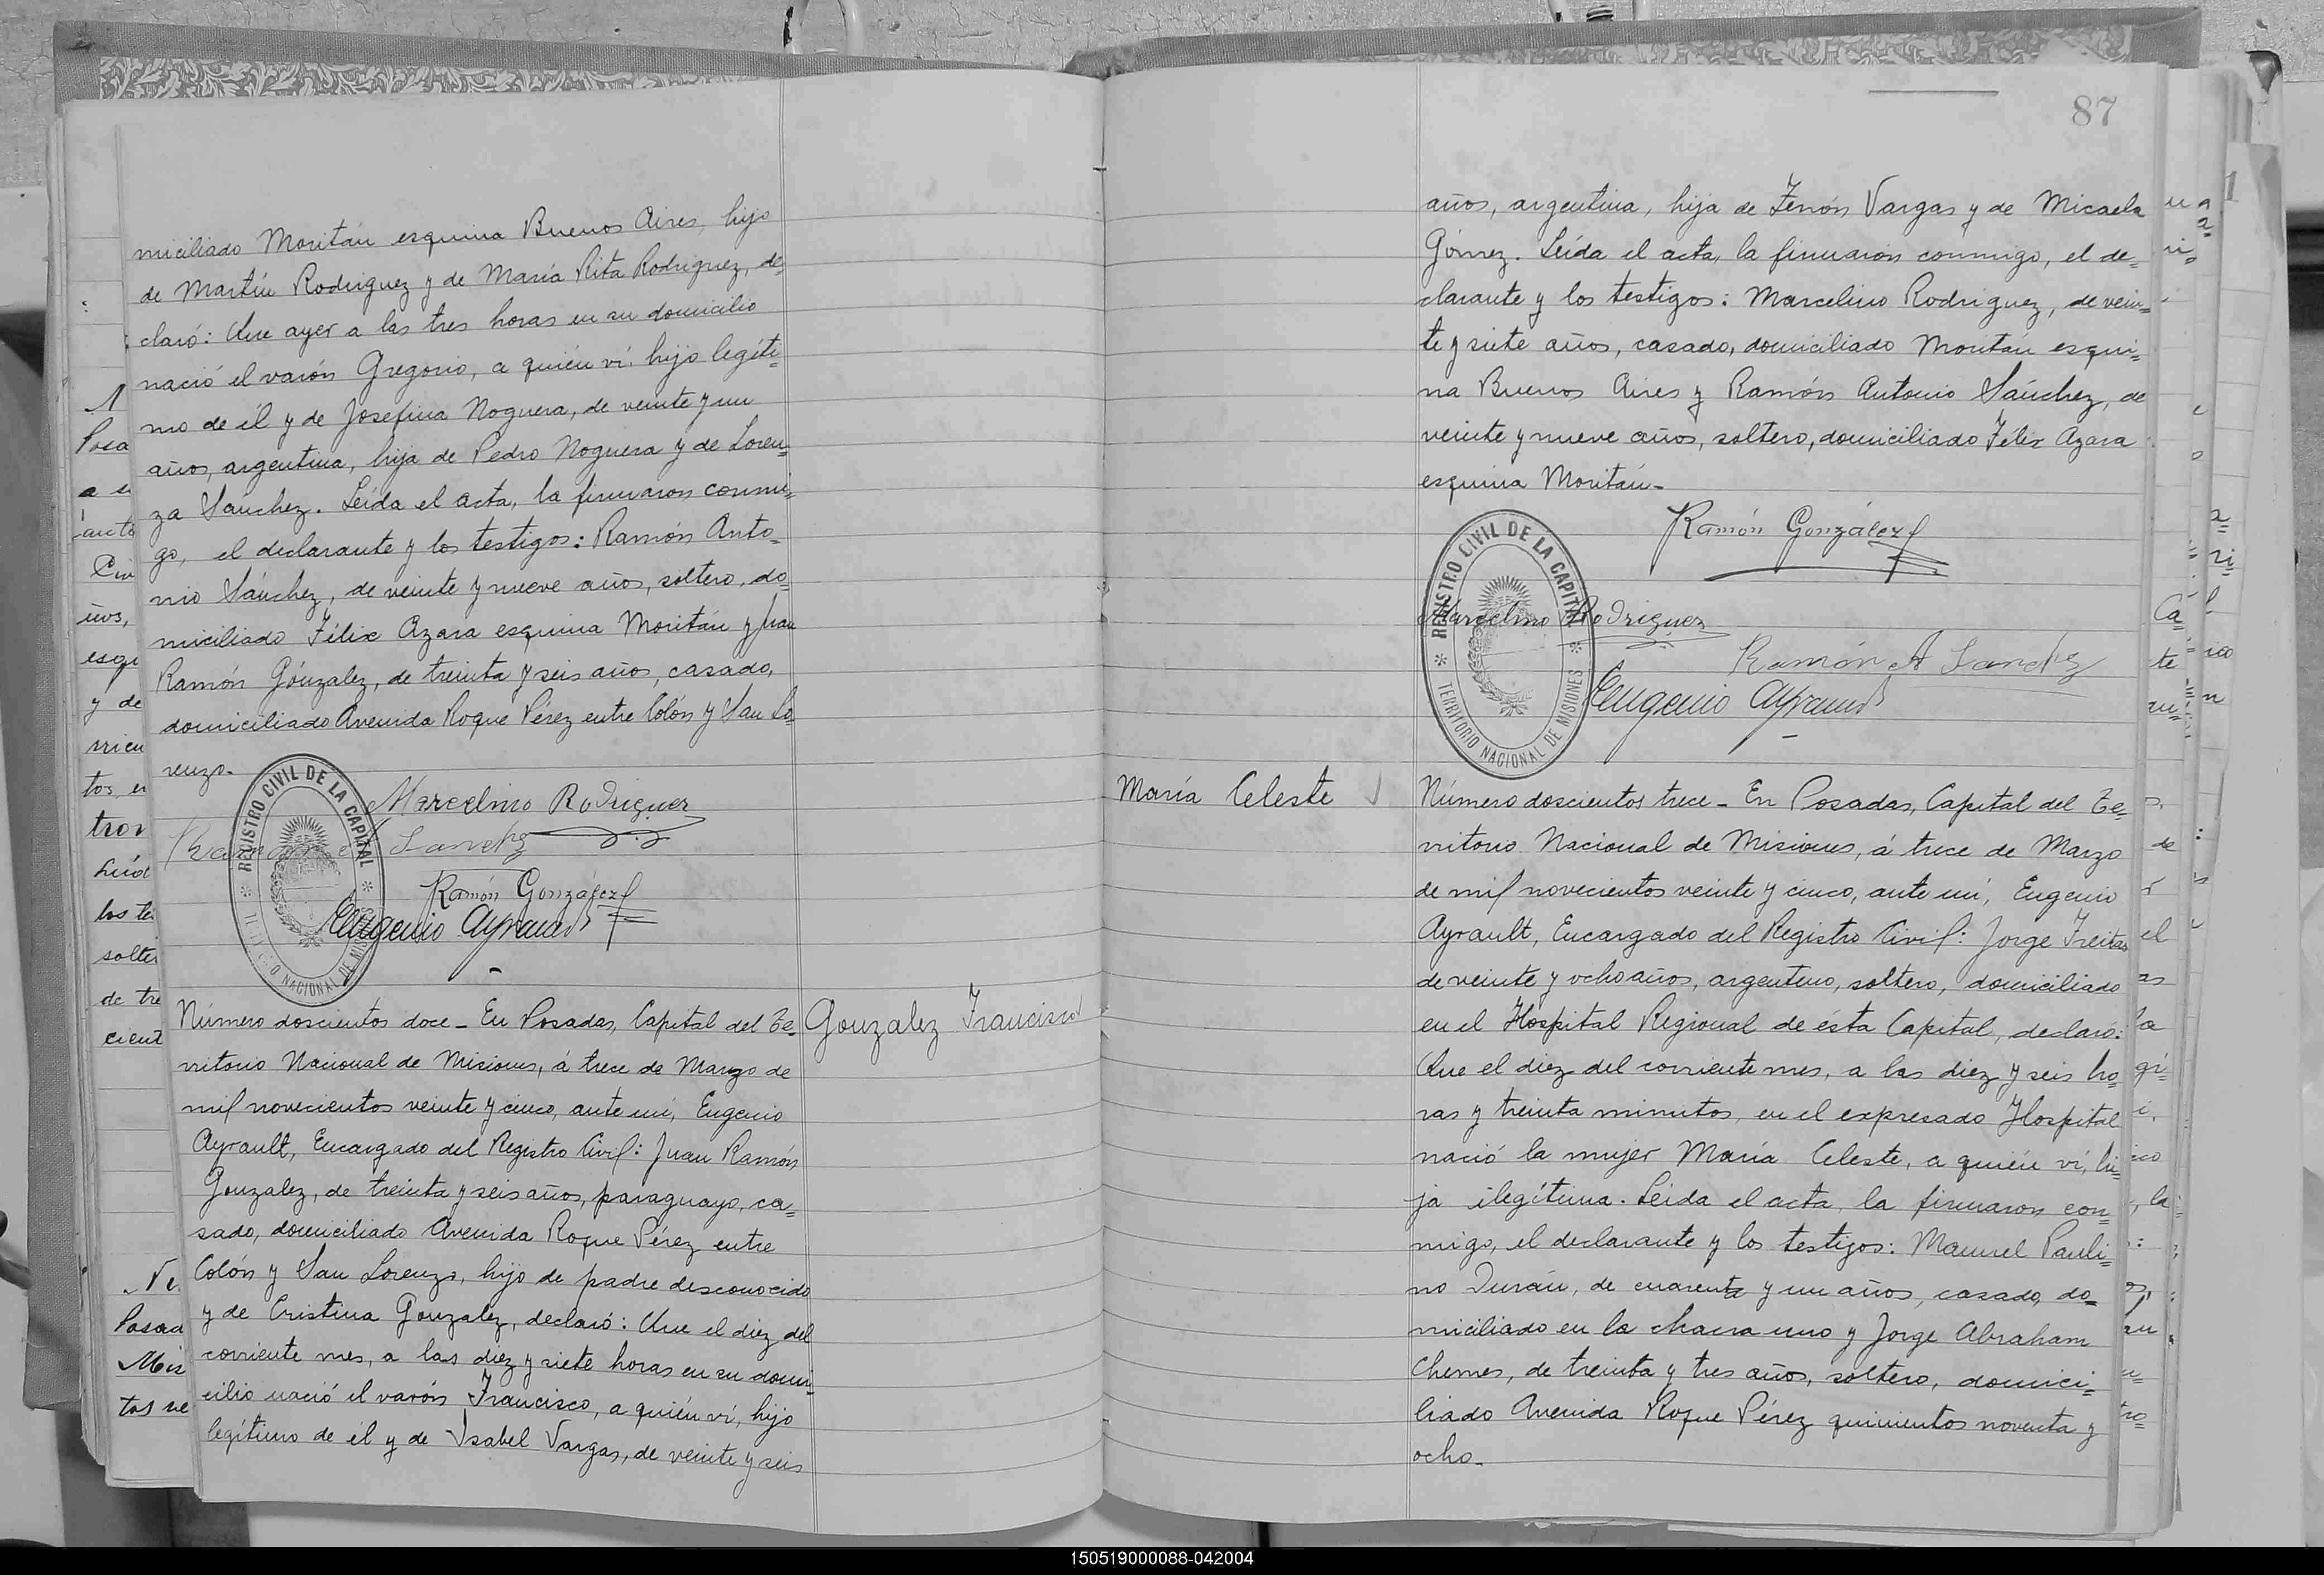 miciliado Moritán esquina Buenos Aires, hijo
de Martín Rodriguez y de María Rita Rodriguez, de=
claró: Que ayer a las tres horas en su domicilio
nació el varón Gregorio, a quién ví, hijo legíti=
mo de él y de Josefina Noguera, de veinte y un
años, argentina, hija de Pedro Noguera y de Loren=
za Sanchez. Leída el acta, la firmaron conmi=
go, el declarante y los testigos: Ramón Anto=
nio Sánchez, de veinte y nueve años, soltero, do=
miciliado Félix Azara esquina Moritán y Juan
Ramón Gónzalez, de treinta y seis años, casado,
domiciliado Avenida Roque Pérez entre Colón y San Lo=
renzo.-
REGISTRO CIVIL DE LA CAPITAL
NACIONAL DE MISIONES
Marcelino Rodriguez
Ramón A Sanchez
Ramón González
Eugenio Ayrault
Gonzalez Francisco
Número doscientos doce - En Posadas, Capital del Te=
rritorio Nacional de Misiones, á trece de Marzo de
mil novecientos veinte y cinco, ante mí, Eugenio
Ayrault, Encargado del Registro Civil: Juan Ramón
Gonzalez, de treinta y seis años, paraguayo, ca=
sado, domiciliado Avenida Roque Pérez entre
Colón y San Lorenzo, hijo de padre desconocido
y de Cristina Gonzalez, declaró: Que el diez del
corriente mes, a las diez y siete horas en su domi=
cilio nació el varón Francisco, a quién ví, hijo
legítimo de él y de Isabel Vargas, de veinte y seis
87
años, argentina, hija de Zenón Vargas y de Micaela
Gómez. Leída el acta, la firmaron conmigo, el de=
clarante y los testigos: Marcelino Rodriguez, de vein=
te y siete años, casado, domiciliado Moritán esqui=
na Buenos Aires y Ramón Antonio Sánchez, de
veinte y nueve años, soltero, domiciliado Félix Azara
esquina Moritán -
REGISTRO CIVIL DE LA CAPITAL
TERRITORIO NACIONAL DE MISIONES
Ramón González
Marcelino Rodriguez
Ramón A Sanchez
Eugenio Ayrault
María Celeste
Número doscientos trece - En Posadas, Capital del Te=
rritorio Nacional de Misiones, á trece de Marzo
de mil novecientos veinte y cinco, ante mí, Eugenio
Ayrault, Encargado del Registro Civil: Jorge Freitas
de veinte y ocho años, argentino, soltero, domiciliado
en el Hospital Regional de ésta Capital, declaró:
Que el diez del corriente mes, a las diez y seis ho=
ras y treinta minutos, en el expresado Hospital
nació la mujer María Celeste, a quién ví, hi=
ja ilegítima. Leida el acta, la firmaron con=
migo, el declarante y los testigos: Manuel Pauli=
no Durán, de cuarenta y un años, casado, do=
miciliado en la chacra uno y Jorge Abraham
Chemes, de treinta y tres años, soltero, domici=
liado Avenida Roque Pérez quinientos noventa y
ocho.-
150519000088-042004